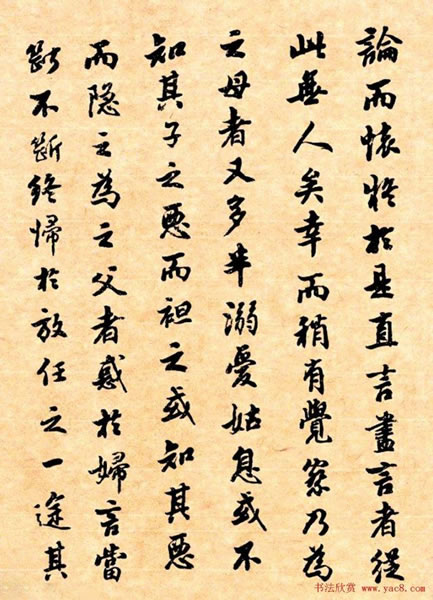 論而懷於是直言盡言者從
此無人矣幸而稍有覺察乃為
之母者又多半溺愛姑息或不
知其子之惡而袒之或知其惡
而隐之為之父者惑於婦言當
斷不斷終歸於放任之一途其
书法欣赏 www.yac8.com